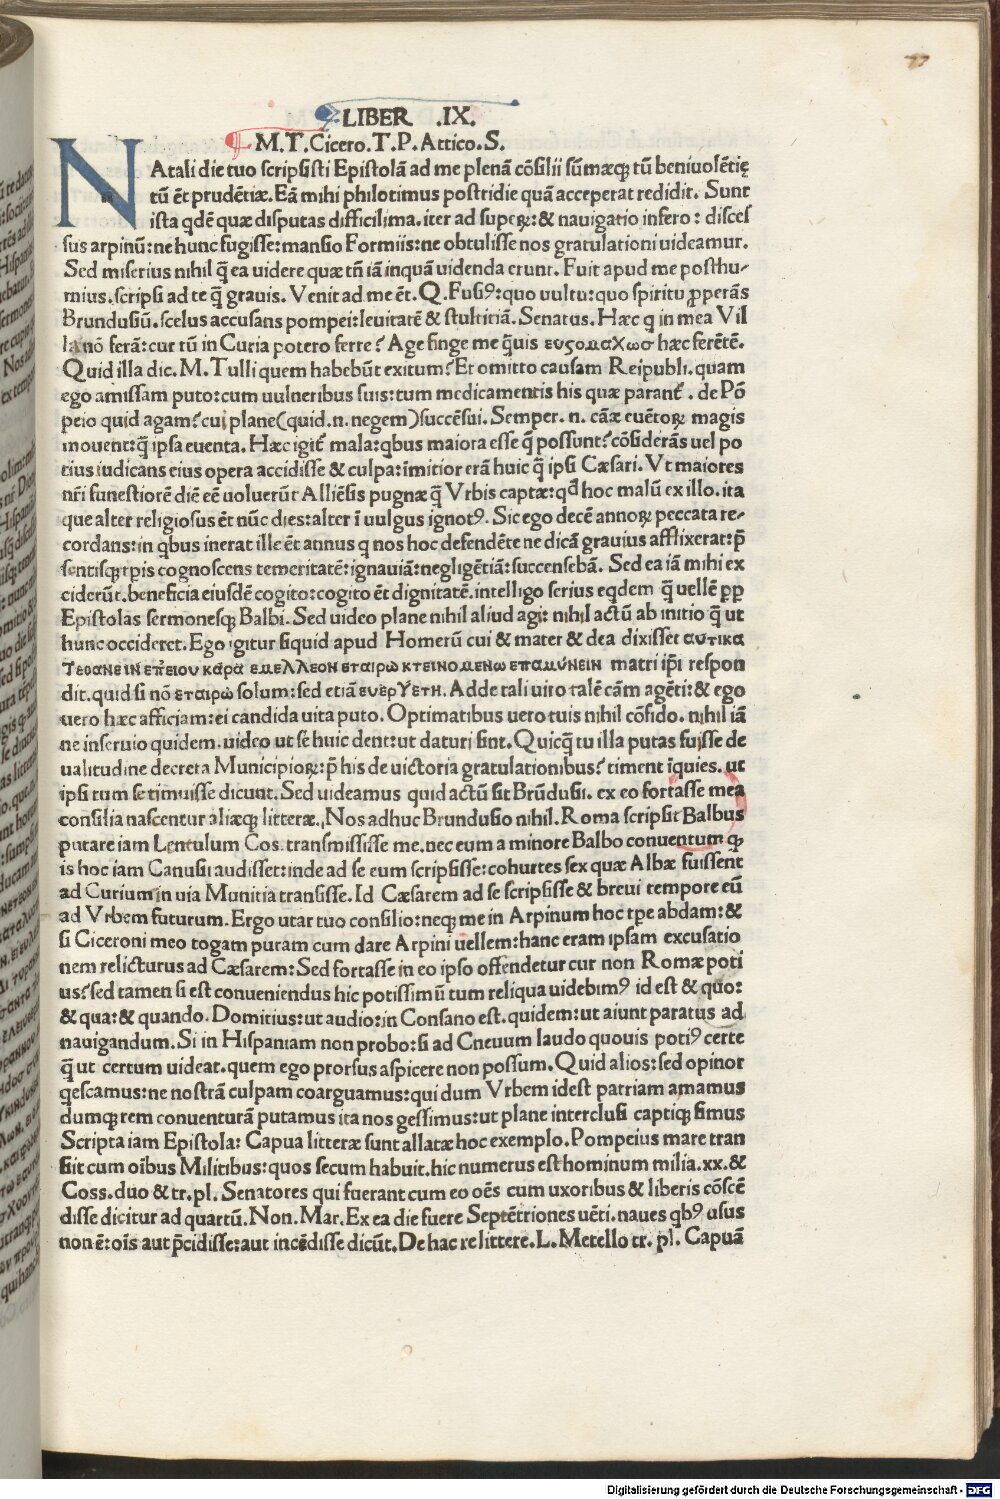 77
LIBER .IX.
M.T.Cicero.T.P.Attico.S.
NAtali die tuo scripsisti Epistolā ad me plenā cōsilii sūmæq; tū beniuolētię
tū ēt prudētiæ. Eā mihi philotimus postridie quā acceperat redidit. Sunt
ista qdē quæ disputas difficilima. iter ad superꝝ: & nauigatio infero: disces
sus arpinū: ne hunc fugisse: mansio Formiis: ne obtulisse nos gratulationi uideamur.
Sed miserius nihil q̄ ea uidere quæ tn̄ iā inquā uidenda erunt. Fuit apud me posthu-
mius. scripsi ad te q̄ grauis. Venit ad me ēt. Q. Fusiꝰ: quo uultu: quo spiritu ꝓperās
Brundusiū. scelus accusans pompei: leuitatē & stultitiā. Senatus. Hæc q in mea Vil
la nō ferā: cur tū in Curia potero ferre? Age finge me q̄uis ευσομαχωσ hæc ferētē.
Quid illa dic. M. Tulli quem habebūt exitum? Et omitto causam Reipubli. quam
ego amissam puto: cum uulneribus suis: tum medicamentis his quæ parant᷑. de Pō
peio quid agam? cui plane (quid. n. negem) succēsui. Semper. n. cāæ euētoꝝ magis
mouent: q̄ ipsa euenta. Hæc igit᷑ mala: qbus maiora esse q̄ possunt? cōsiderās uel po
tius iudicans eius opera accidisse & culpa: īmitior erā huic q̄ ipsi Cæsari. Vt maiores
nr̄i funestiorē diē eē uoluerūt Alliēsis pugnæ q̄ Vrbis captæ: qd̄ hoc malū ex illo. ita
que alter religiosus ēt nūc dies: alter ī uulgus ignotꝰ. Sic ego decē annoꝝ peccata re-
cordans: in qbus inerat ille ēt annus q nos hoc defendēte ne dicā grauius afflixerat: p̄
sentisq; tp̄is cognoscens temeritatē: ignauiā: negligētiā: succensebā. Sed ea iā mihi ex
ciderūt. beneficia eiusdē cogito: cogito ēt dignitatē. intelligo serius eqdem q̄ uellē ꝓp
Epistolas sermonesq; Balbi. Sed uideo plane nihil aliud agi: nihil actū ab initio q̄ ut
hunc occideret. Ego igitur siquid apud Homerū cui & mater & dea dixisset αυτικα
Τεθανειην επειου καρα εμελλεον εταιρω κτεινομενω επαμυνειν matri ip̄i respon
dit. quid si nō εταιρω solum: sed etiā ευεργετη. Adde tali uiro talē cām agēti: & ego
uero hæc afficiam: ei candida uita puto. Optimatibus uero tuis nihil cōfido. nihil iā
ne inseruio quidem. uideo ut se huic dent: ut daturi sint. Quicq̄ tu illa putas fuisse de
ualitudine decreta Municipioꝝ: p̄ his de uictoria gratulationibus? timent īquies. ut
ipsi tum se timuisse dicunt. Sed uideamus quid actū sit Brūdusi. ex eo fortasse mea
consilia nascentur aliæq; litteræ. Nos adhuc Brundusio nihil. Roma scripsit Balbus
putare iam Lentulum Cos. transmisisse me. nec eum a minore Balbo conuentum q;
is hoc iam Canusii audisset: inde ad se eum scripsisse: cohurtes sex quæ Albæ fuissent
ad Curium in uia Munitia transisse. Id Cæsarem ad se scripsisse & breui tempore eū
ad Vrbem futurum. Ergo utar tuo consilio: neq; me in Arpinum hoc tp̄e abdam: &
si Ciceroni meo togam puram cum dare Arpini uellem: hanc eram ipsam excusatio
nem relicturus ad Cæsarem: Sed fortasse in eo ipso offendetur cur non Romæ poti
us? sed tamen si est conueniendus hic potissimū tum reliqua uidebimꝰ id est & quo:
& qua: & quando. Domitius: ut audio: in Consano est. quidem: ut aiunt paratus ad
nauigandum. Si in Hispaniam non probo: si ad Cneuum laudo quouis potiꝰ certe
q̄ ut certum uideat. quem ego prorsus aspicere non possum. Quid alios: sed opinor
qescamus: ne nostrā culpam coarguamus: qui dum Vrbem idest patriam amamus
dumq; rem conuenturā putamus ita nos gessimus: ut plane interclusi captiq; simus
Scripta iam Epistola: Capua litteræ sunt allatæ hoc exemplo. Pompeius mare tran
siit cum oībus Militibus: quos secum habuit. hic numerus est hominum milia. xx. &
Coss. duo & tr. pl. Senatores qui fuerant cum eo oēs cum uxoribus & liberis cōscē
disse dicitur ad quartū. Non. Mar. Ex ea die fuere Septētriones uēti. naues qbꝰ usus
non ē: oīs aut p̄cidisse: aut incēdisse dicūt. De hac re littere. L. Metello tr. pl. Capuā
Digitalisierung gefördert durch die Deutsche Forschungsgemeinschaft - DFG